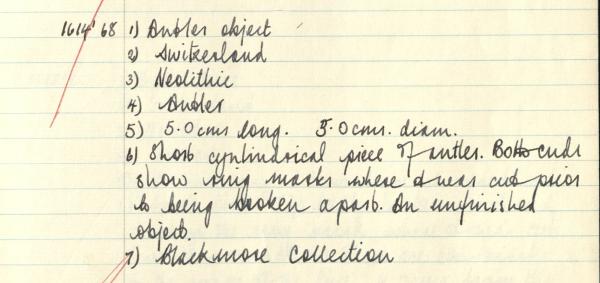 1614' 68 1) Antler object
2) Switzerland
3) Neolithic
4) Antler
5) 5.0 cms long. 3.0 cms. diam.
6) Short cyclindrical piece of antler. Both ends
show ring marks where it was cut prior
to being broken apart. An unfinished
object.
7) Blackmore Collection